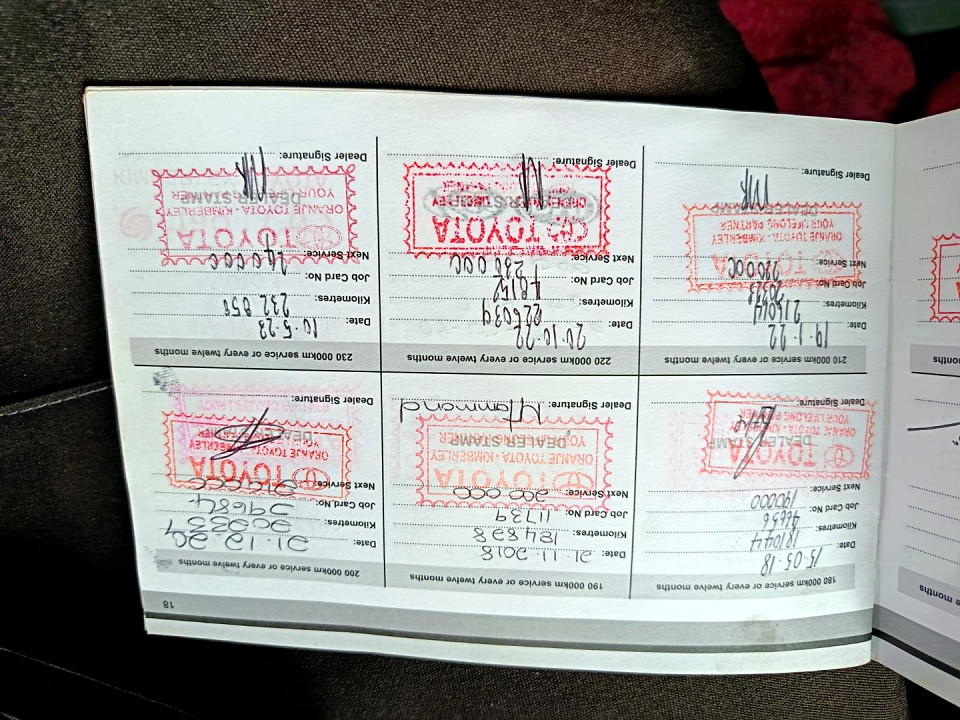 18
180 000km service or every twelve months
Date: 15-05-18
Kilometres: 181044
Job Card No: 46656
Next Service: 190000
TOYOTA
ORANJE TOYOTA - KIMBERLEY
YOUR LIFELONG PARTNER
DEALER STAMP
Dealer Signature:
190 000km service or every twelve months
Date: 21.11.2018
Kilometres:
Job Card No: 11739
Next Service: 200 000
TOYOTA
ORANJE TOYOTA - KIMBERLEY
DEALER STAMP
Dealer Signature: Hammond
200 000km service or every twelve months
Date: 21.12.
Kilometres:
Job Card No: 29684
Next Service: 210000
TOYOTA
ORANJE TOYOTA - KIMBERLEY
DEALER STAMP
Dealer Signature:
210 000km service or every twelve months
Date: 19.1.22
Kilometres: 215014
Job Card No:
Next Service: 220000
TOYOTA
ORANJE TOYOTA - KIMBERLEY
YOUR LIFELONG PARTNER
DEALER STAMP
Dealer Signature:
220 000km service or every twelve months
Date: 20.10.22
Kilometres: 226039
Job Card No: 48152
Next Service: 230 000
TOYOTA
DEALER STAMP
Dealer Signature:
230 000km service or every twelve months
Date: 10.5.23
Kilometres: 232 850
Job Card No:
Next Service: 240000
TOYOTA
ORANJE TOYOTA - KIMBERLEY
DEALER STAMP
Dealer Signature: